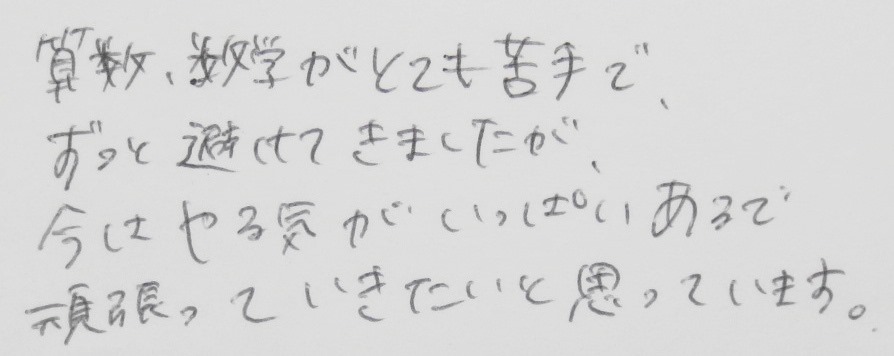 算数、数学がとても苦手で、
ずっと避けてきましたが、
今はやる気がいっぱいあるで
頑張っていきたいと思っています。